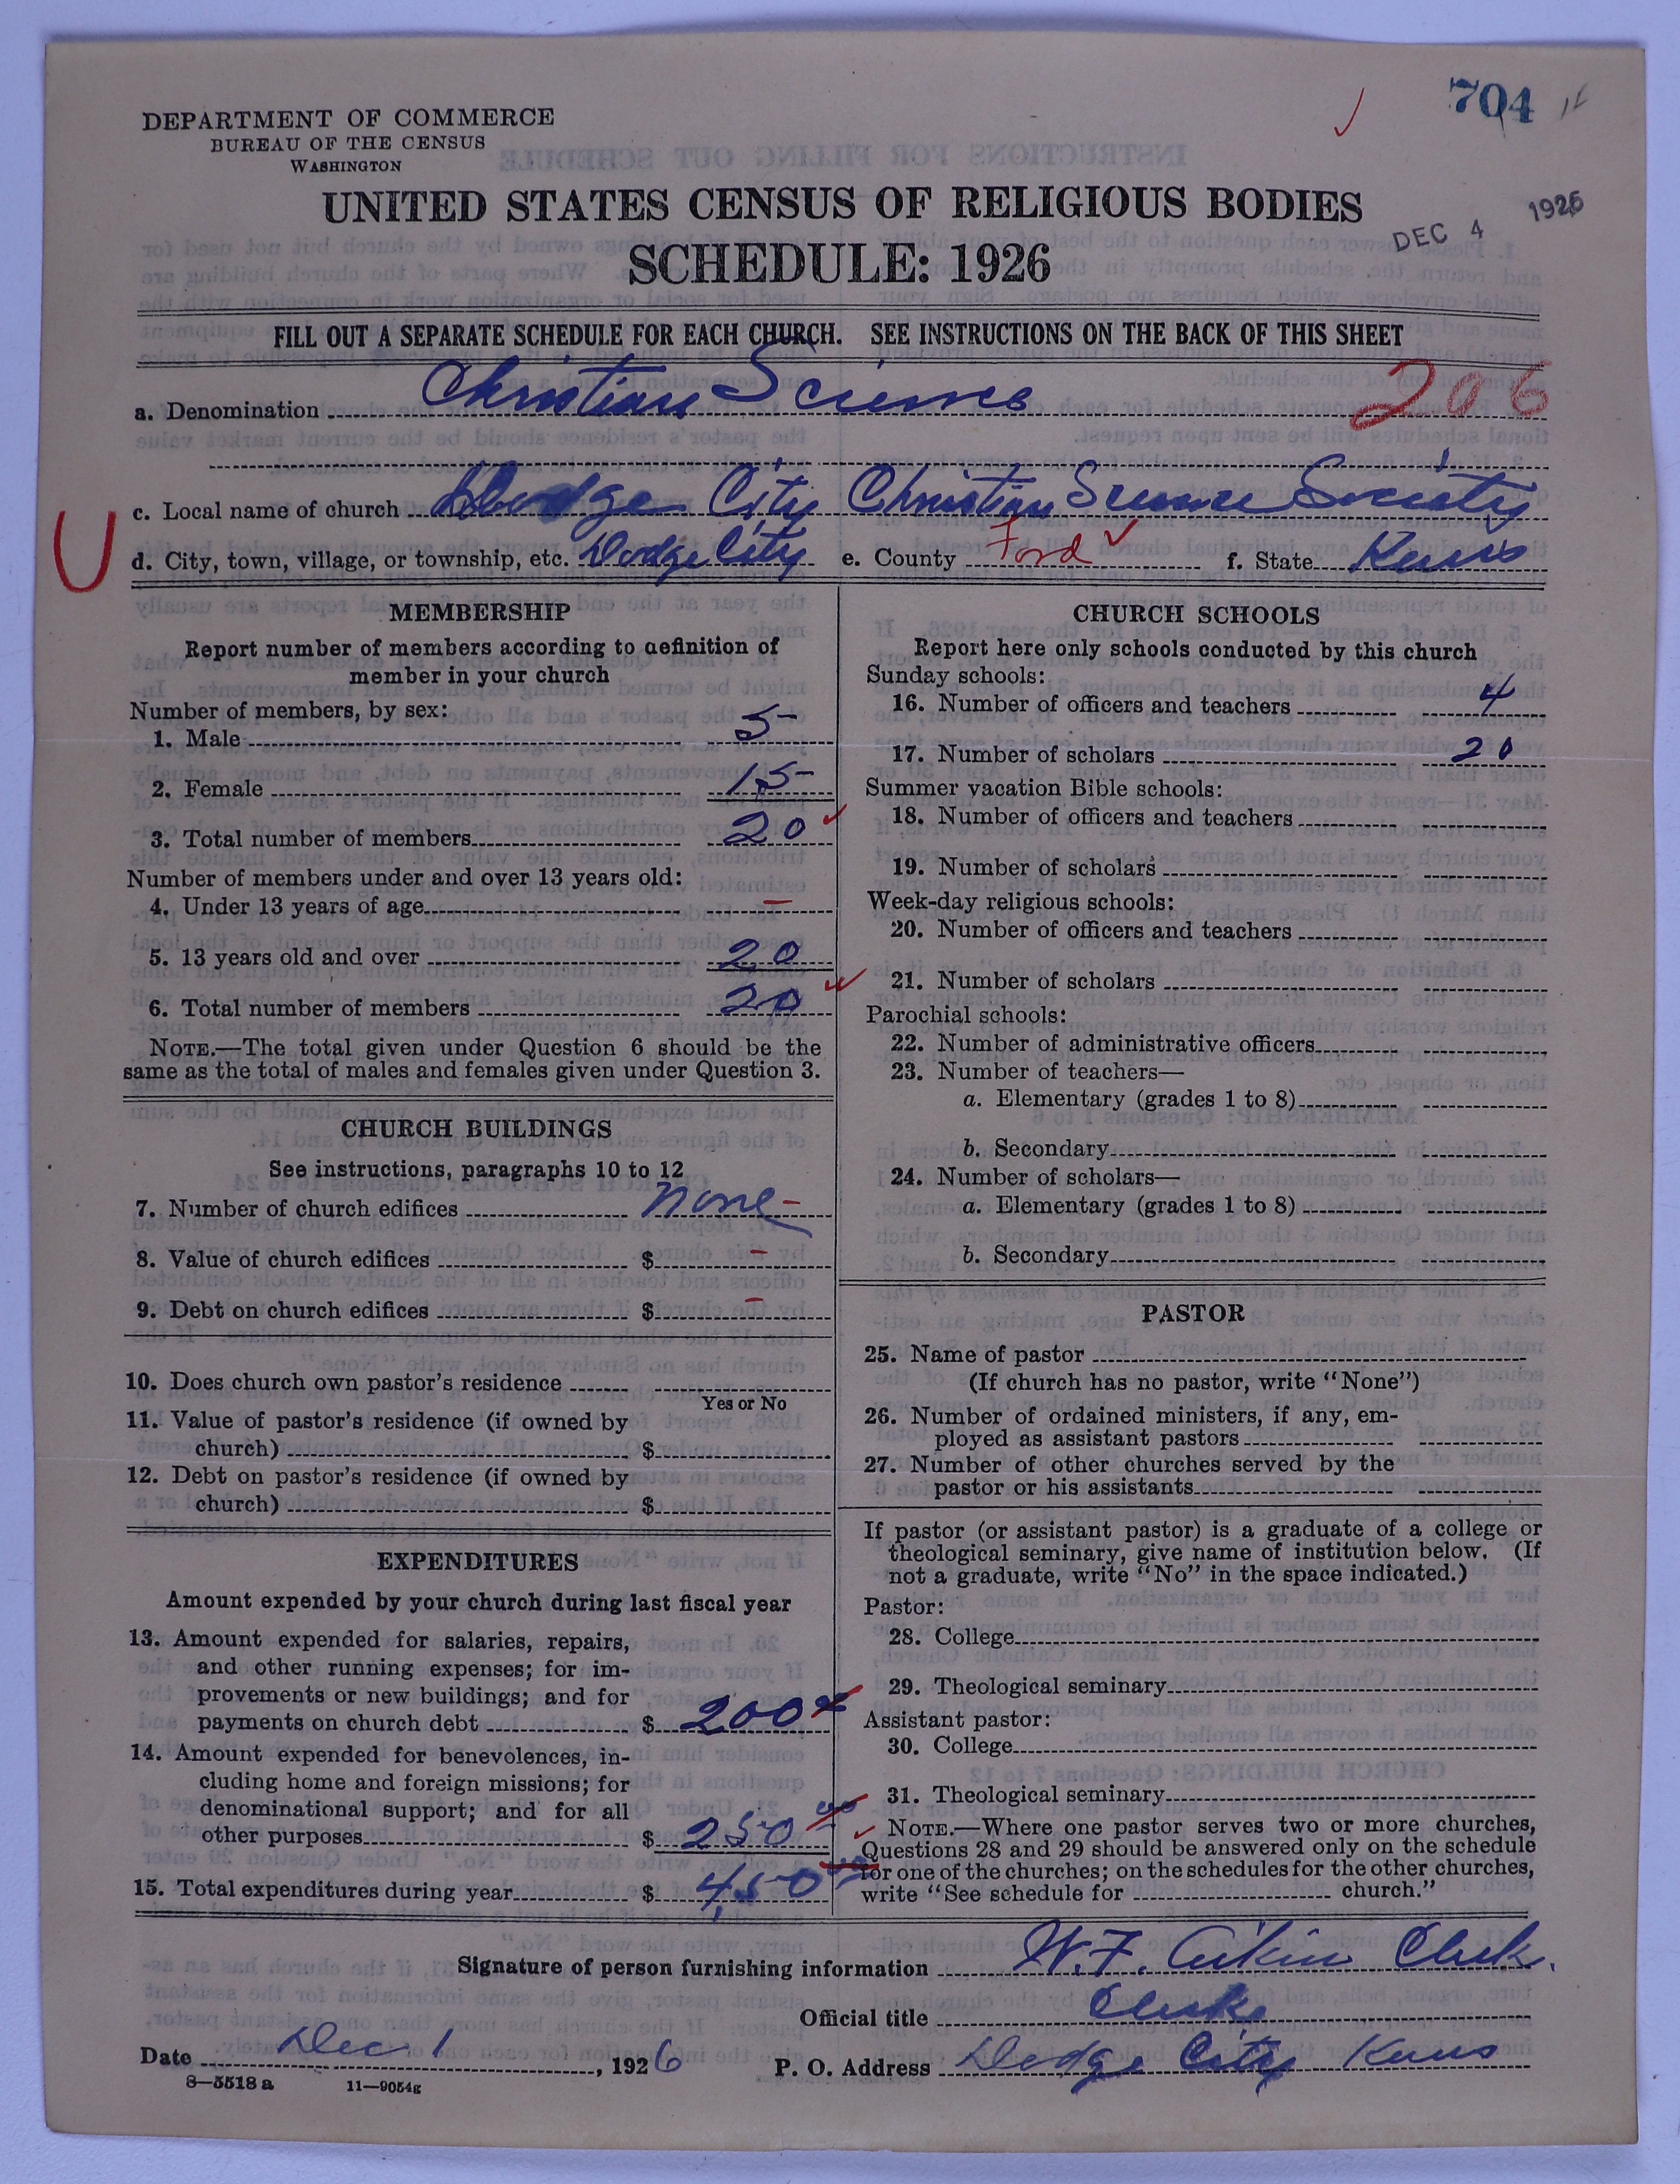 704
DEPARTMENT OF COMMERCE
BUREAU OF THE CENSUS
WASHINGTON
UNITED STATES CENSUS OF RELIGIOUS BODIES
DEC 4 1926
SCHEDULE: 1926
FILL OUT A SEPARATE SCHEDULE FOR EACH CHURCH. SEE INSTRUCTIONS ON THE BACK OF THIS SHEET
a. Denomination Christian Science 206
c. Local name of church Dodge City Christian Science Society
U
d. City, town, village, or township, etc. Dodge City e. County Ford f. State Kans
MEMBERSHIP
Report number of members according to definition of
member in your church
Number of members, by sex:
1. Male 5
2. Female 15
3. Total number of members 20
Number of members under and over 13 years old:
4. Under 13 years of age –
5. 13 years old and over 20
6. Total number of members 20
NOTE.—The total given under Question 6 should be the
same as the total of males and females given under Question 3.
CHURCH BUILDINGS
See instructions, paragraphs 10 to 12
7. Number of church edifices none –
8. Value of church edifices $ –
9. Debt on church edifices $ –
10. Does church own pastor's residence
Yes or No
11. Value of pastor's residence (if owned by
church) $
12. Debt on pastor's residence (if owned by
church) $
EXPENDITURES
Amount expended by your church during last fiscal year
13. Amount expended for salaries, repairs,
and other running expenses; for im-
provements or new buildings; and for
payments on church debt $ 200
14. Amount expended for benevolences, in-
cluding home and foreign missions; for
denominational support; and for all
other purposes $ 250 00
15. Total expenditures during year $ 450 00
CHURCH SCHOOLS
Report here only schools conducted by this church
Sunday schools:
16. Number of officers and teachers 4
17. Number of scholars 20
Summer vacation Bible schools:
18. Number of officers and teachers
19. Number of scholars
Week-day religious schools:
20. Number of officers and teachers
21. Number of scholars
Parochial schools:
22. Number of administrative officers
23. Number of teachers—
a. Elementary (grades 1 to 8)
b. Secondary
24. Number of scholars—
a. Elementary (grades 1 to 8)
b. Secondary
PASTOR
25. Name of pastor
(If church has no pastor, write "None")
26. Number of ordained ministers, if any, em-
ployed as assistant pastors
27. Number of other churches served by the
pastor or his assistants
If pastor (or assistant pastor) is a graduate of a college or
theological seminary, give name of institution below. (If
not a graduate, write "No" in the space indicated.)
Pastor:
28. College
29. Theological seminary
Assistant pastor:
30. College
31. Theological seminary
NOTE.—Where one pastor serves two or more churches,
Questions 28 and 29 should be answered only on the schedule
for one of the churches; on the schedules for the other churches,
write "See schedule for church."
Signature of person furnishing information W. F. Aikin Clerk.
Official title Clerk
Date Dec 1, 1926 P. O. Address Dodge City Kans
8—5518 a 11—9054g